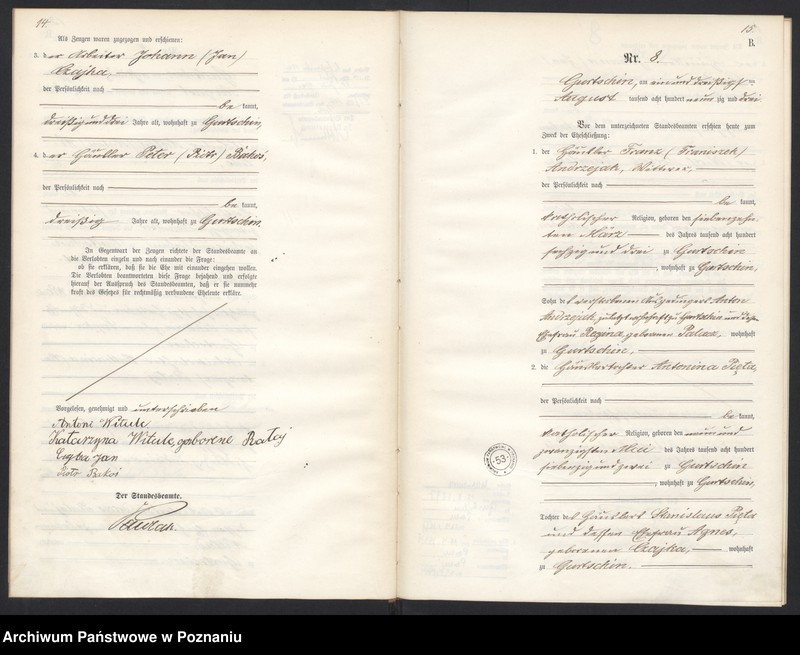 14.
Als Zeugen waren zugezogen und erschienen:
3. der Arbeiter Johann (Jan)
Czajka,
der Persönlichkeit nach
be kannt,
dreißig und drei Jahre alt, wohnhaft zu Gurtschin,
4. der Häusler Peter (Piotr)
der Persönlichkeit nach
be kannt,
dreißig Jahre alt, wohnhaft zu Gurtschin.
In Gegenwart der Zeugen richtete der Standesbeamte an
die Verlobten einzeln und nach einander die Frage:
ob sie erklären, daß sie die Ehe mit einander eingehen wollen.
Die Verlobten beantworteten diese Frage bejahend und erfolgte
hierauf der Ausspruch des Standesbeamten, daß er sie nunmehr
kraft des Gesetzes für rechtmäßig verbundene Eheleute erkläre.
Vorgelesen, genehmigt und unterschrieben
Antoni Witula
Katarzyna Witula, geborene Rataj
Jan
Piotr
Der Standesbeamte.
15.
B.
Nr. 8.
Gurtschin, am ein und dreißigsten
August tausend acht hundert neun zig und drei
Vor dem unterzeichneten Standesbeamten erschien heute zum
Zweck der Eheschließung:
1. der Häusler Franz (Franiszek)
Andrzejak, Wittwer,
der Persönlichkeit nach
be kannt,
katholischer Religion, geboren den siebenzehn-
ten März des Jahres tausend acht hundert
sechzig und drei zu Gurtschin
, wohnhaft zu Gurtschin,
Sohn des verstorbenen Auszüngers Anton
Andrzejak, zuletzt wohnhaft zu Gurtschin und dessen
Ehefrau Regina, geborenen wohnhaft
zu Gurtschin,
2. die Häuslertochter Antonina Pięta,
der Persönlichkeit nach
be kannt,
katholischer Religion, geboren den neun und
zwanzigsten Mai des Jahres tausend acht hundert
siebenzig und zwei zu Gurtschin
, wohnhaft zu Gurtschin,
Tochter des Häuslers Stanislaus Pięta
und dessen Ehefrau Agnes,
geborenen Czajka, wohnhaft
zu Gurtschin.
53
Archiwum Państwowe w Poznaniu